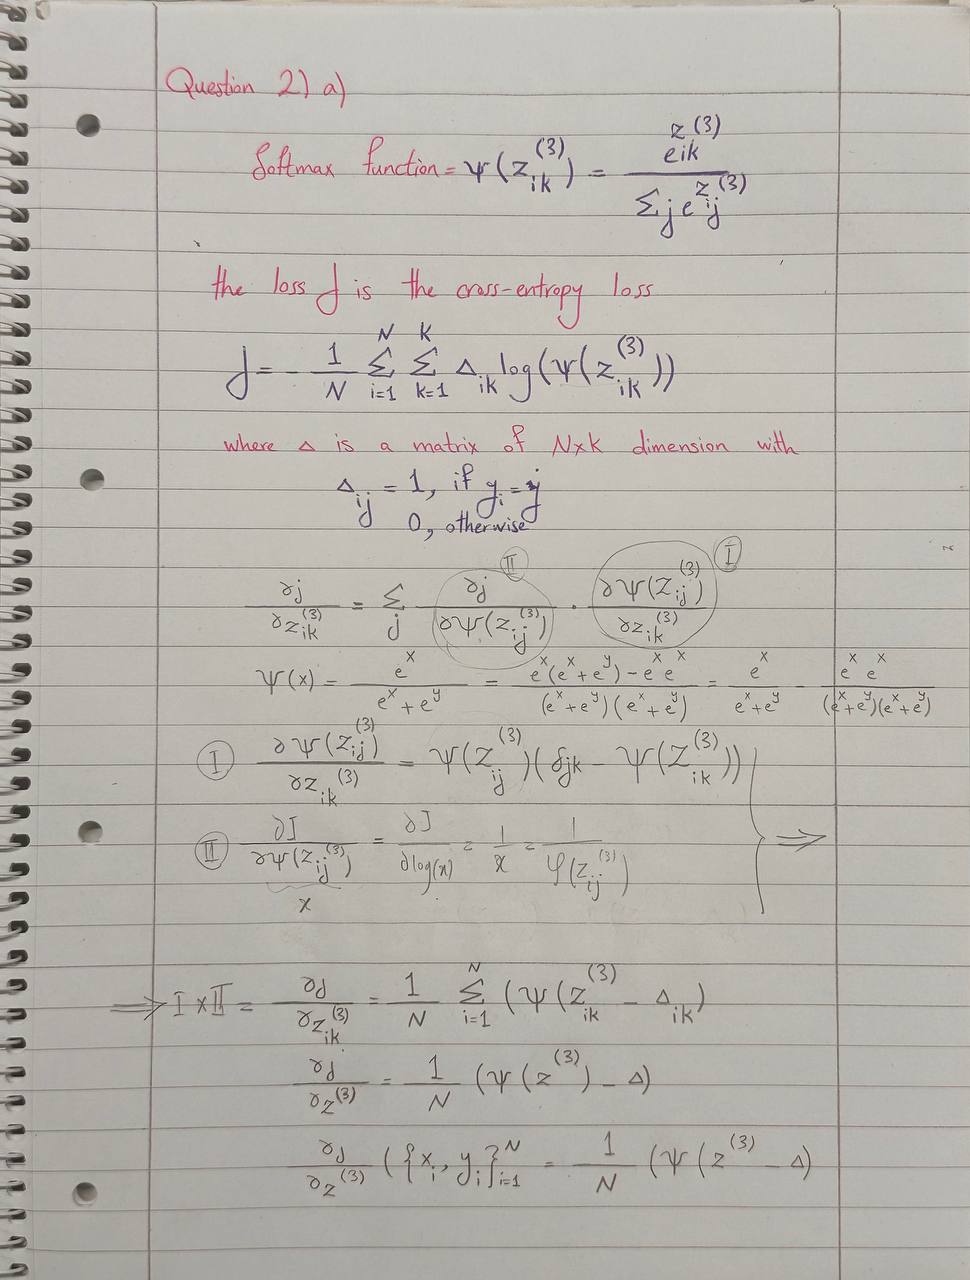 Question 2) a)
Softmax function = ψ(z_ik^(3)) = e^(z_ik^(3)) / Σ_j e^(z_ij^(3))
the loss J is the cross-entropy loss
J = - 1/N Σ_{i=1}^{N} Σ_{k=1}^{K} Δ_ik log(ψ(z_ik^(3)))
where Δ is a matrix of N×K dimension with
Δ_ij = 1, if y_i = j
0, otherwise
∂J/∂z_ik^(3) = Σ_j ∂J/∂ψ(z_ij^(3)) (II) · ∂ψ(z_ij^(3))/∂z_ik^(3) (I)
ψ(x) = e^x/(e^x + e^y) = (e^x(e^x + e^y) - e^x e^x)/((e^x + e^y)(e^x + e^y)) = e^x/(e^x + e^y) - e^x e^x/((e^x + e^y)(e^x + e^y))
(I) ∂ψ(z_ij^(3))/∂z_ik^(3) = ψ(z_ij^(3))(δjk - ψ(z_ik^(3)))
(II) ∂J/∂ψ(z_ij^(3)) = ∂J/∂log(x) = 1/x = 1/φ(z_ij^(3)) ⇒
x
⇒ I × II = ∂J/∂z_ik^(3) = 1/N Σ_{i=1}^{N} (ψ(z_ik^(3) - Δ_ik)
∂J/∂z^(3) = 1/N (ψ(z^(3)) - Δ)
∂J/∂z^(3) ({x_i, y_i}_{i=1}^{N} = 1/N (ψ(z^(3) - Δ)